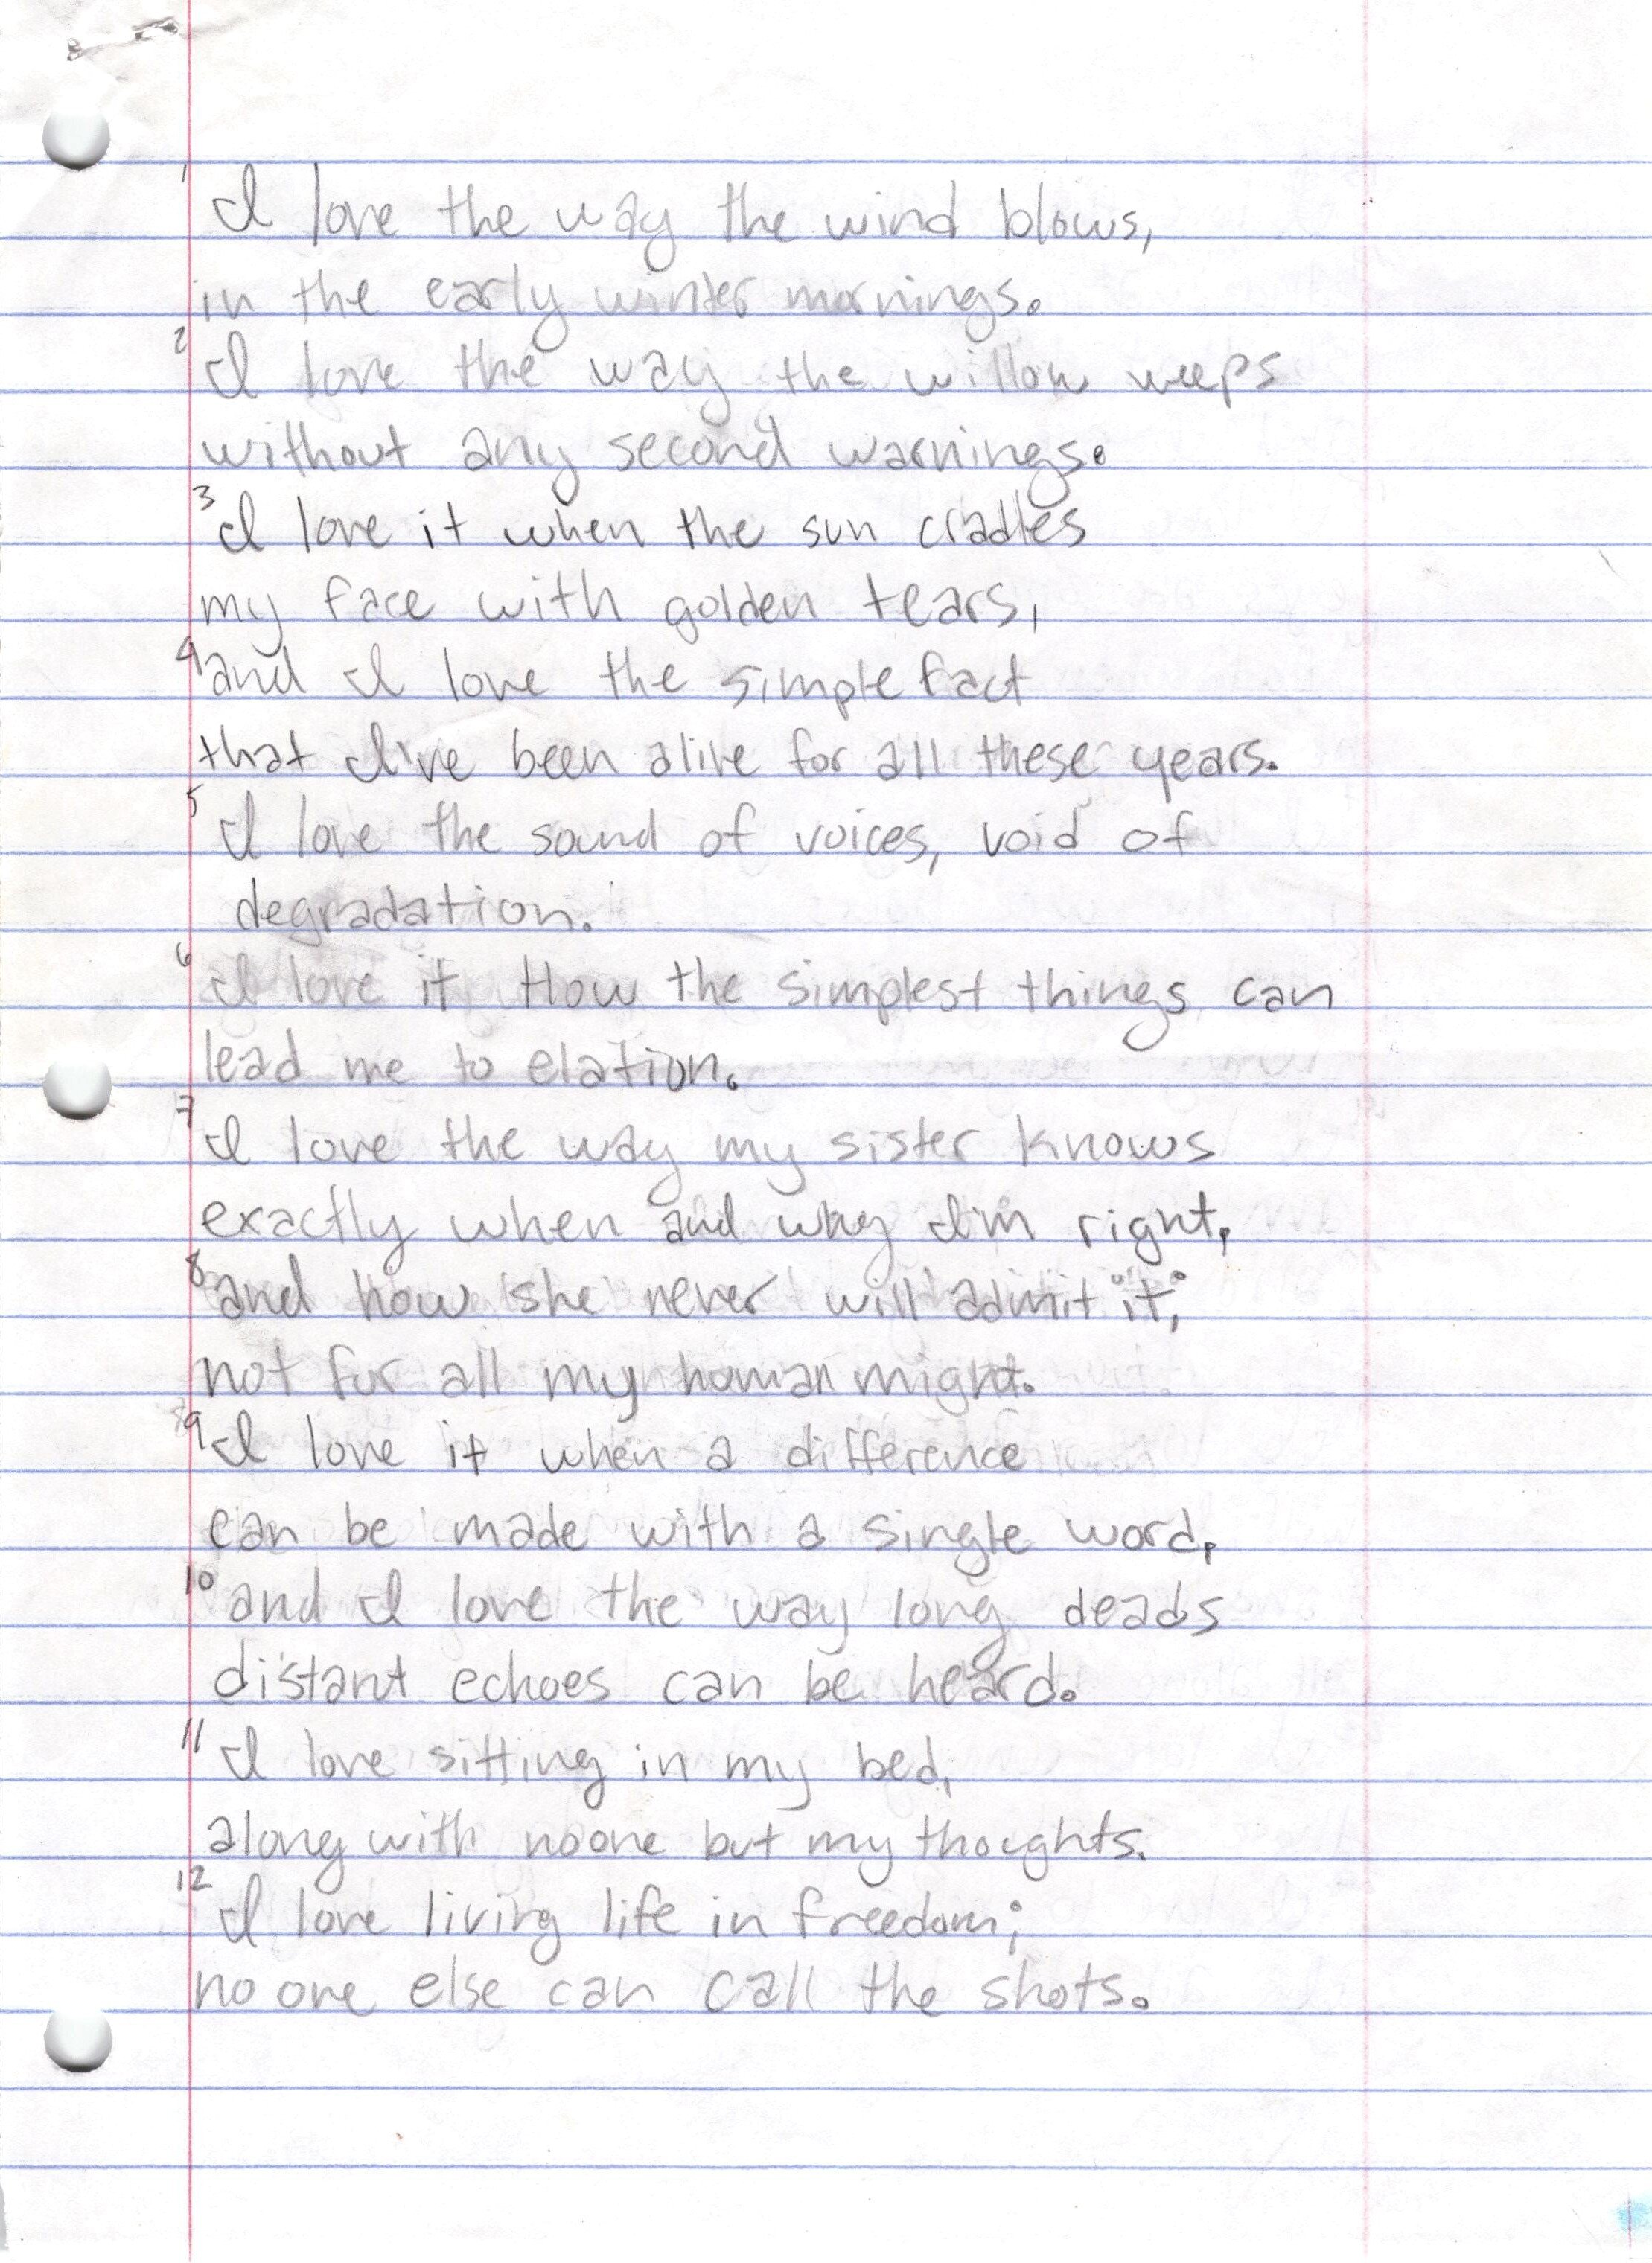 1 I love the way the wind blows,
in the early winter mornings.
2 I love the way the willow weeps
without any second warnings.
3 I love it when the sun cradles
my face with golden tears,
4 and I love the simple fact
that I've been alive for all these years.
5 I love the sound of voices, void of
degradation.
6 I love it How the simplest things can
lead me to elation.
7 I love the way my sister knows
exactly when and why I'm right,
8 and how she never will admit it;
not for all my human might.
9 I love it when a difference
can be made with a single word,
10 and I love the way long deads
distant echoes can be heard.
11 I love sitting in my bed,
along with noone but my thoughts.
12 I love living life in freedom;
no one else can call the shots.